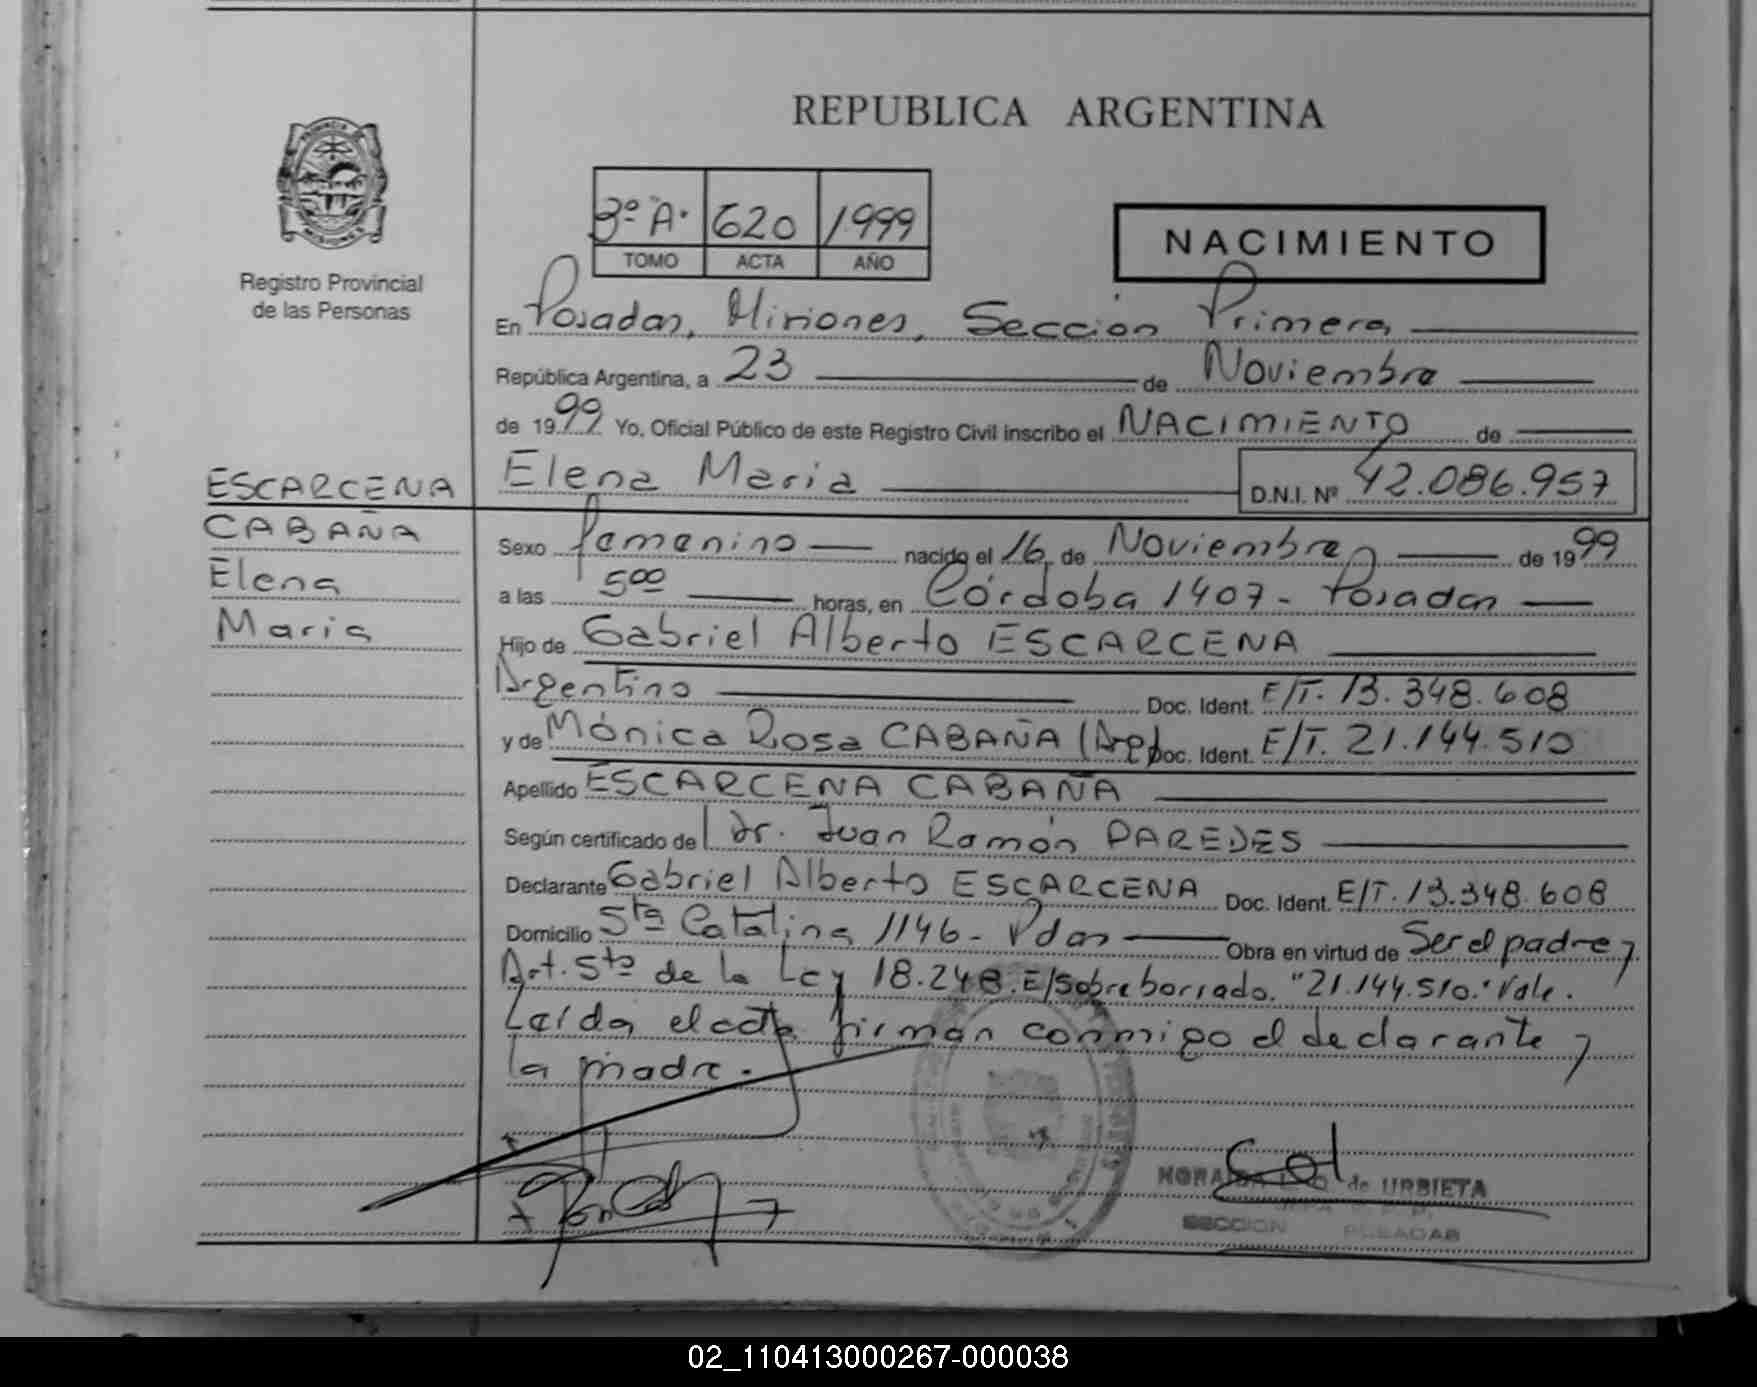 REPUBLICA ARGENTINA
PROVINCIA DE
MISIONES
Registro Provincial
de las Personas
3º "A" 620 1999
TOMO ACTA AÑO
NACIMIENTO
En Posadas, Misiones, Sección Primera
República Argentina, a 23 de Noviembre
de 1999 Yo, Oficial Público de este Registro Civil inscribo el NACIMIENTO de
Elena Maria D.N.I. Nº 42.086.957
ESCARCENA
CABAÑA
Elena
Maria
Sexo femenino nacido el 16 de Noviembre de 1999
a las 5 00 horas, en Córdoba 1407 - Posadas
Hijo de Gabriel Alberto ESCARCENA
Argentino Doc. Ident. E/T. 13.348.608
y de Mónica Rosa CABAÑA (Arg) Doc. Ident. E/T. 21.144.510
Apellido ESCARCENA CABAÑA
Según certificado de Dr. Juan Ramón PAREDES
Declarante Gabriel Alberto ESCARCENA Doc. Ident. E/T. 13.348.608
Domicilio Sta Catalina 1146 - Pdas Obra en virtud de Ser el padre y
Art. 5to de la Ley 18.248. E/Sobreborrado. "21.144.510." Vale.
Leída el acta firman conmigo el declarante y
la madre.
de URBIETA
SECCION POSADAS
02_110413000267-000038